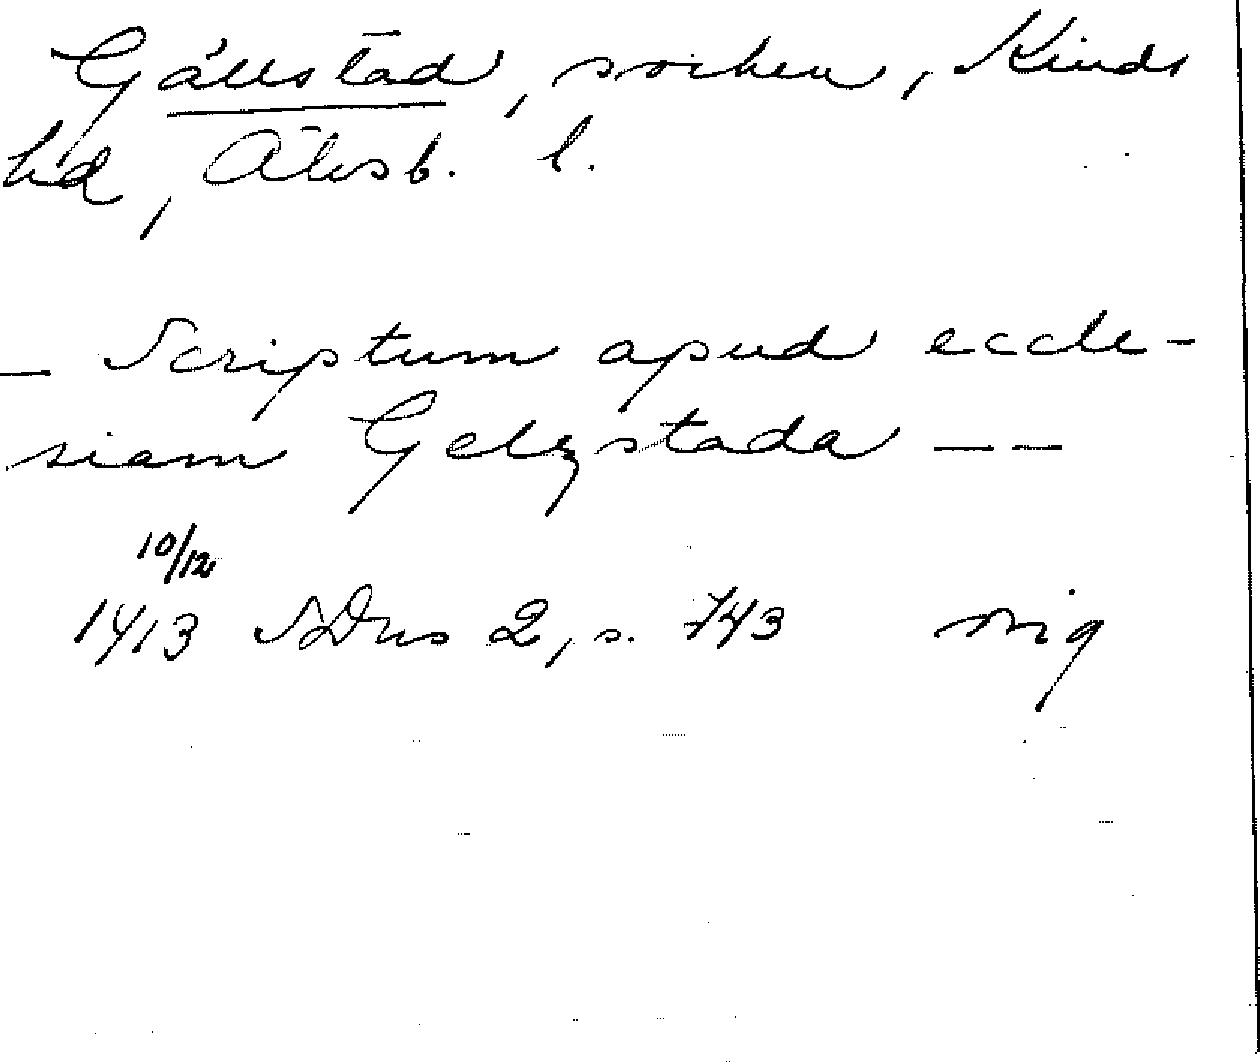 Gällstad, socken, Kinds
hd, Älvsb. l.
— Scriptum apud eccle-
siam Gelzstada — —
10/12
1413 SDns 2, s. 743 orig